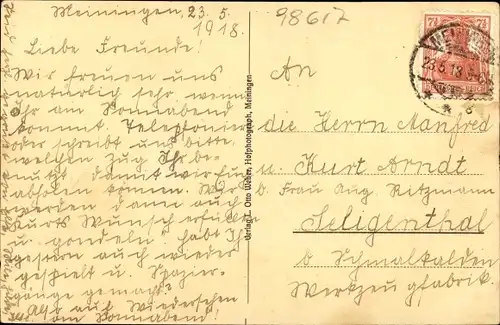 Meiningen, 23.5.
1918.
Liebe Freunde!
Wir freuen uns
natürlich sehr wenn
Ihr am Sonnabend
kommt. Telephoniert
oder schreibt uns bitte
welchen Zug Ihr be-
nutzt damit wir Euch
abholen können. Wir
werden dann auch
Kurts Wunsch erfüllen
u. gondeln. Habt Ihr
gestern auch wieder
gespielt u. Spazier-
gänge gemacht?
Also auf Wiedersehen
am Sonnabend!
Verlag L. Otto Weber, Hofphotograph, Meiningen
98617
7½
23.5.18
An
die Herrn Manfred
u. Kurt Arndt
b. Frau Aug. Ritzmann
Seligenthal
b. Schmalkalden
Werkzeugfabrik.